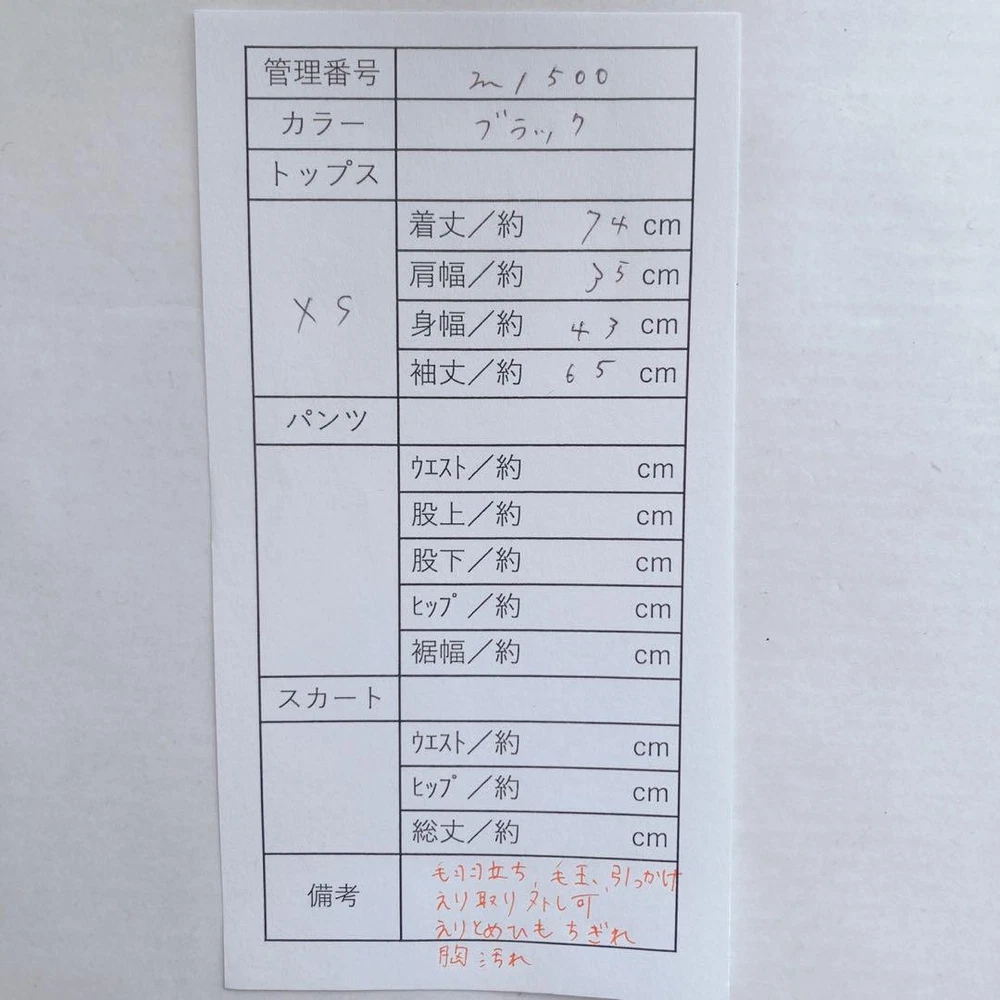 管理番号 m1500
カラー ブラック
トップス
XS
着丈／約 74 cm
肩幅／約 35 cm
身幅／約 43 cm
袖丈／約 65 cm
パンツ
ｳｴｽﾄ／約 cm
股上／約 cm
股下／約 cm
ﾋｯﾌﾟ／約 cm
裾幅／約 cm
スカート
ｳｴｽﾄ／約 cm
ﾋｯﾌﾟ／約 cm
総丈／約 cm
備考
毛羽立ち、毛玉、引っかけ
えり取り外し可
えりとめひもちぎれ
胸汚れ